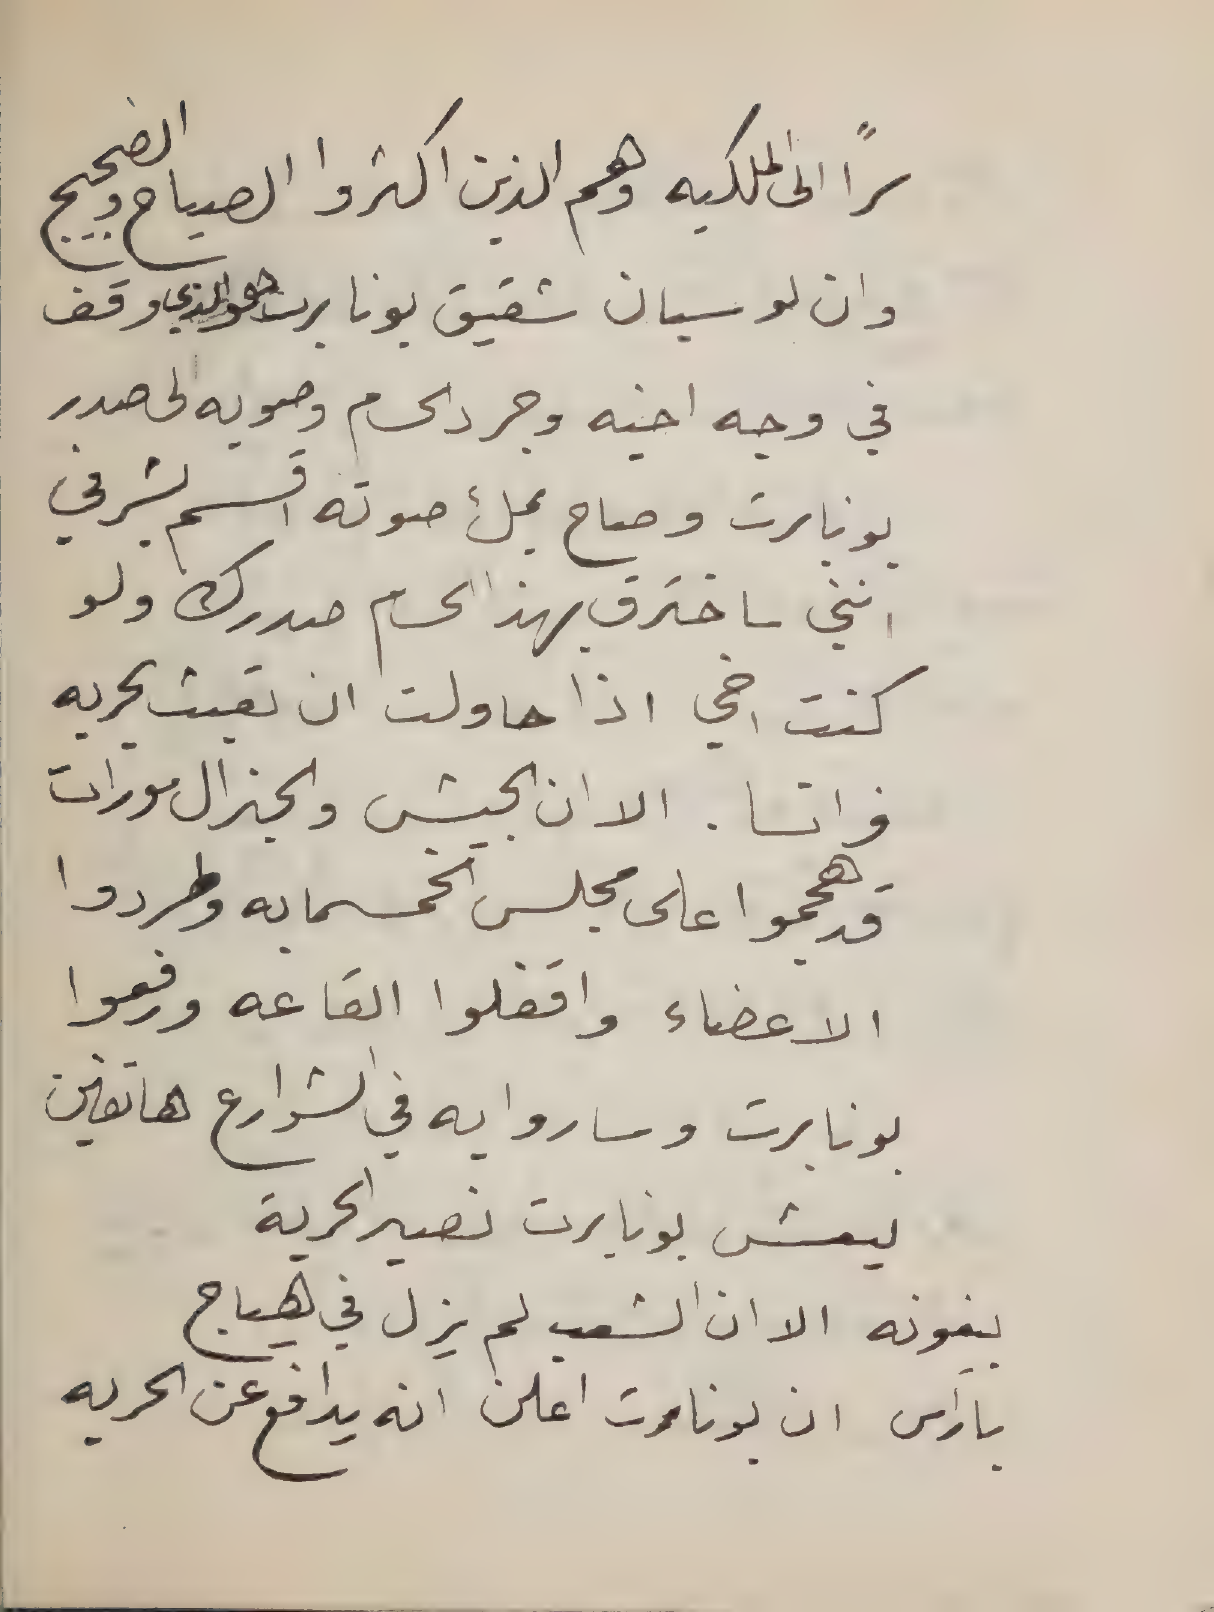 سرًا الى الملكيه وهم الذين اكثروا الصياح والضجيج
وان لوسيان شقيق بونابرت هو الذي وقف
في وجه اخيه وجرد الحسام وصوبه الى صدر
بونابرت وصاح بملئ صوته اقسم بشرفي
انني ساخترق بهذا الحسام صدرك ولو
كنت اخي اذا حاولت ان تعبث بحريه
فرانسا . الا ان الجيش والجنرال مورات
قد هجموا على مجلس الخمسمايه وطردوا
الاعضاء واقفلوا القاعه ورفعوا
بونابرت وساروا به في الشوارع هاتفين
ليعش بونابرت نصير الحرية
بيغونه الا ان الشعب لم يزل في هياج
باراس ان بونابرت اعلن انه يدافع عن الحريه